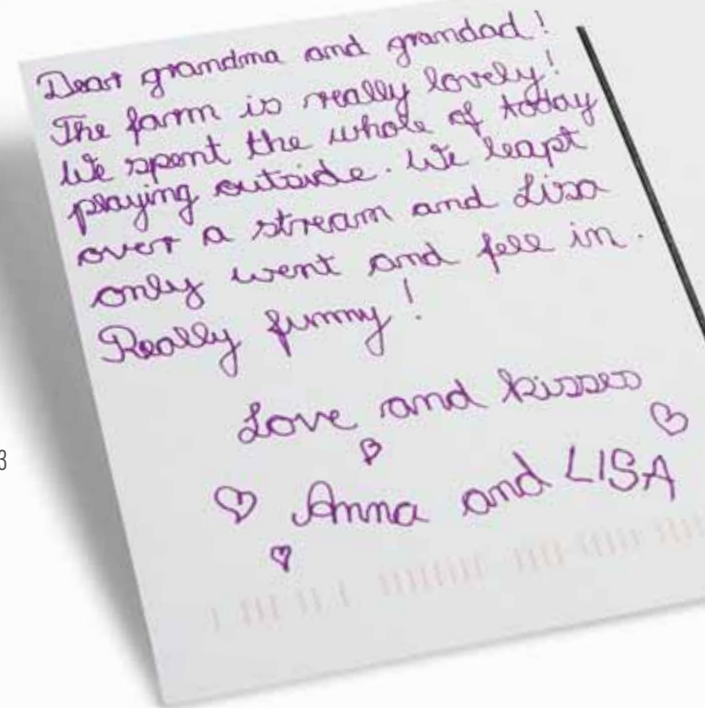 Dear grandma and grandad!
The farm is really lovely!
We spent the whole of today
playing outside. We leapt
over a stream and Lisa
only went and fell in.
Really funny!
Love and kisses
Anna and LISA
3